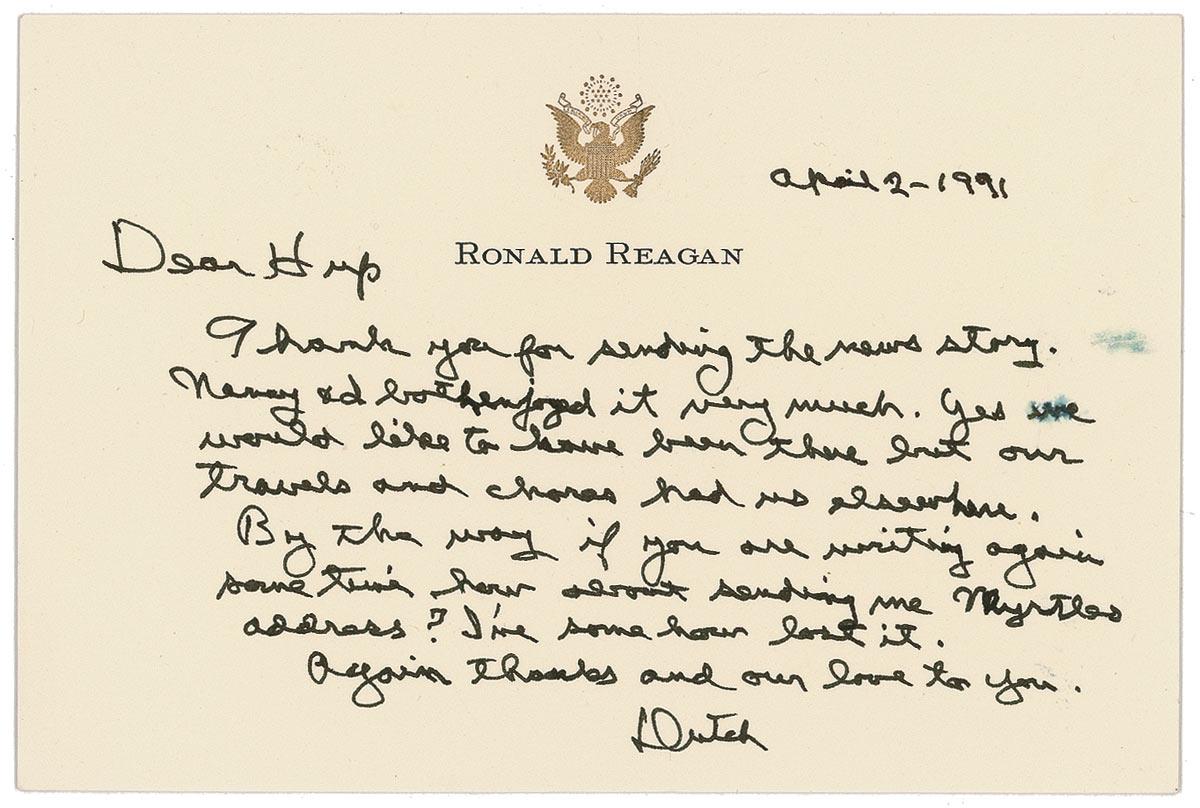 April 2-1991
RONALD REAGAN
Dear Hup
Thank you for sending the news story.
Nancy & I both enjoyed it very much. Yes we
would like to have been there but our
travels and chores had us elsewhere.
By the way if you are writing again
some time how about sending me Myrtles
address? I've some how lost it.
Again thanks and our love to you.
Dutch